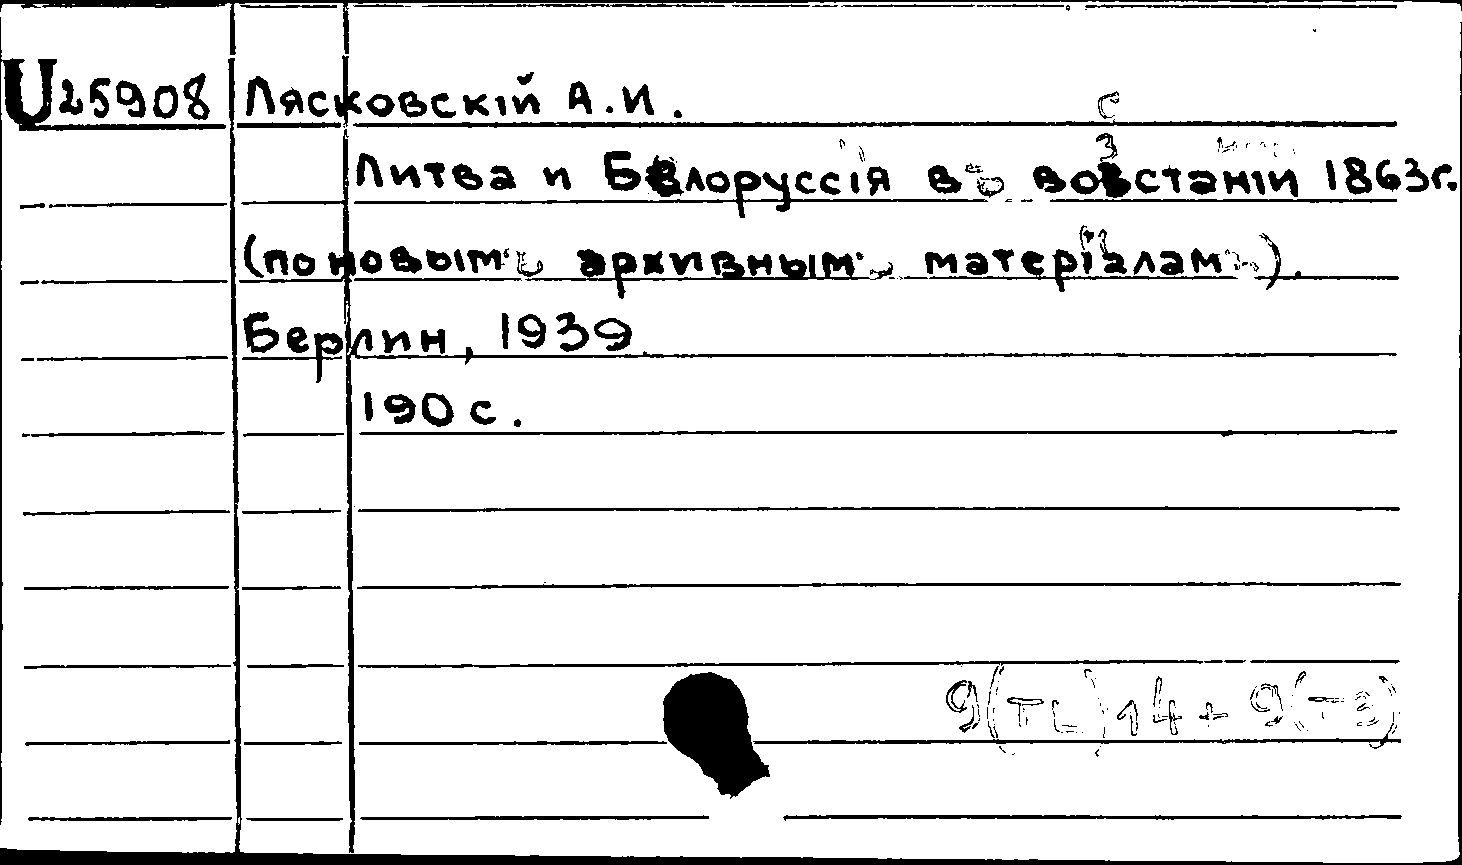 U25908 Лясковскій А.И.
Литва и Бѣлоруссія въ возстаніи 1863г.
(по новымъ архивнымъ матеріаламъ).
Берлин, 1939
190 с.
9(TL)14+9(TB)